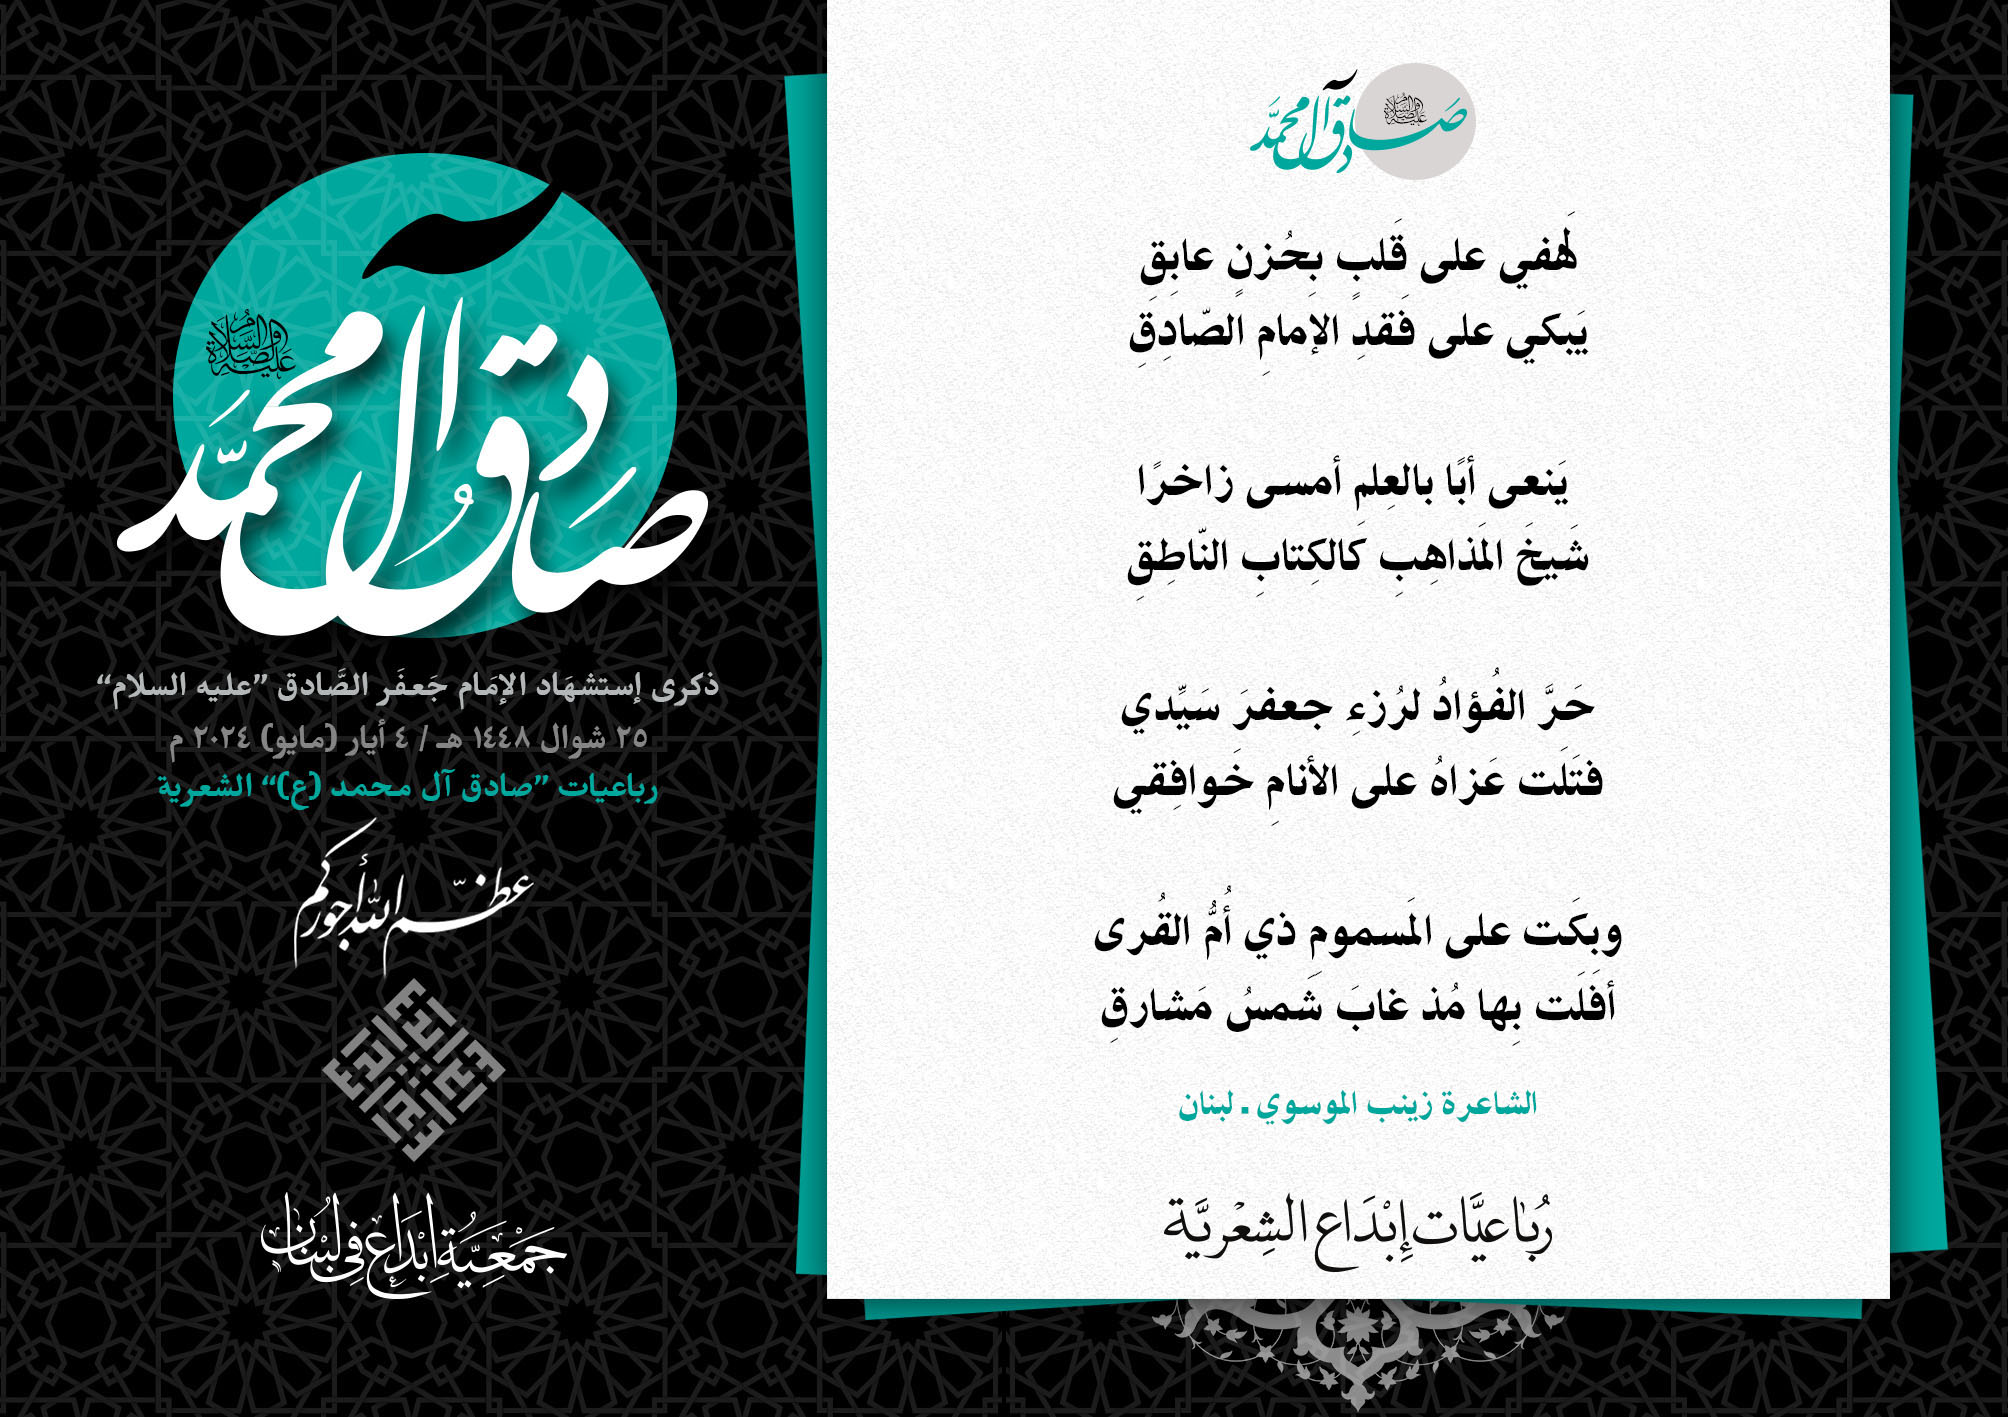 صادق آل محمد
عليه الصلاة والسلام
ذكرى إستشهَاد الإمَام جَعفَر الصَّادق ”عليه السلام“
٢٥ شوال ١٤٤٨ هـ / ٤ أيار (مايو) ٢٠٢٤ م
رباعيات ”صادق آل محمد (ع)“ الشعرية
عظّم الله أجوركم
جَمْعِيَّةُ إِبْدَاعٍ فِي لُبْنَان
صادق آل محمد
عليه الصلاة والسلام
لَهفي على قَلبٍ بِحُزنٍ عابِقِ
يَبكي على فَقدِ الإمامِ الصّادِقِ
يَنعى أبًا بالعِلمِ أمسى زاخرًا
شَيخَ المَذاهِبِ كَالكِتابِ النّاطِقِ
حَرَّ الفُؤادُ لرُزءِ جعفرَ سَيِّدي
فتَلَت عَزاهُ على الأنامِ خَوافِقي
وبكَت على المَسمومِ ذي أُمُّ القُرى
أفَلَت بِها مُذ غابَ شَمسُ مَشارقِ
الشاعرة زينب الموسوي . لبنان
رُبَاعيَّات إِبْدَاع الشِعْريَّة